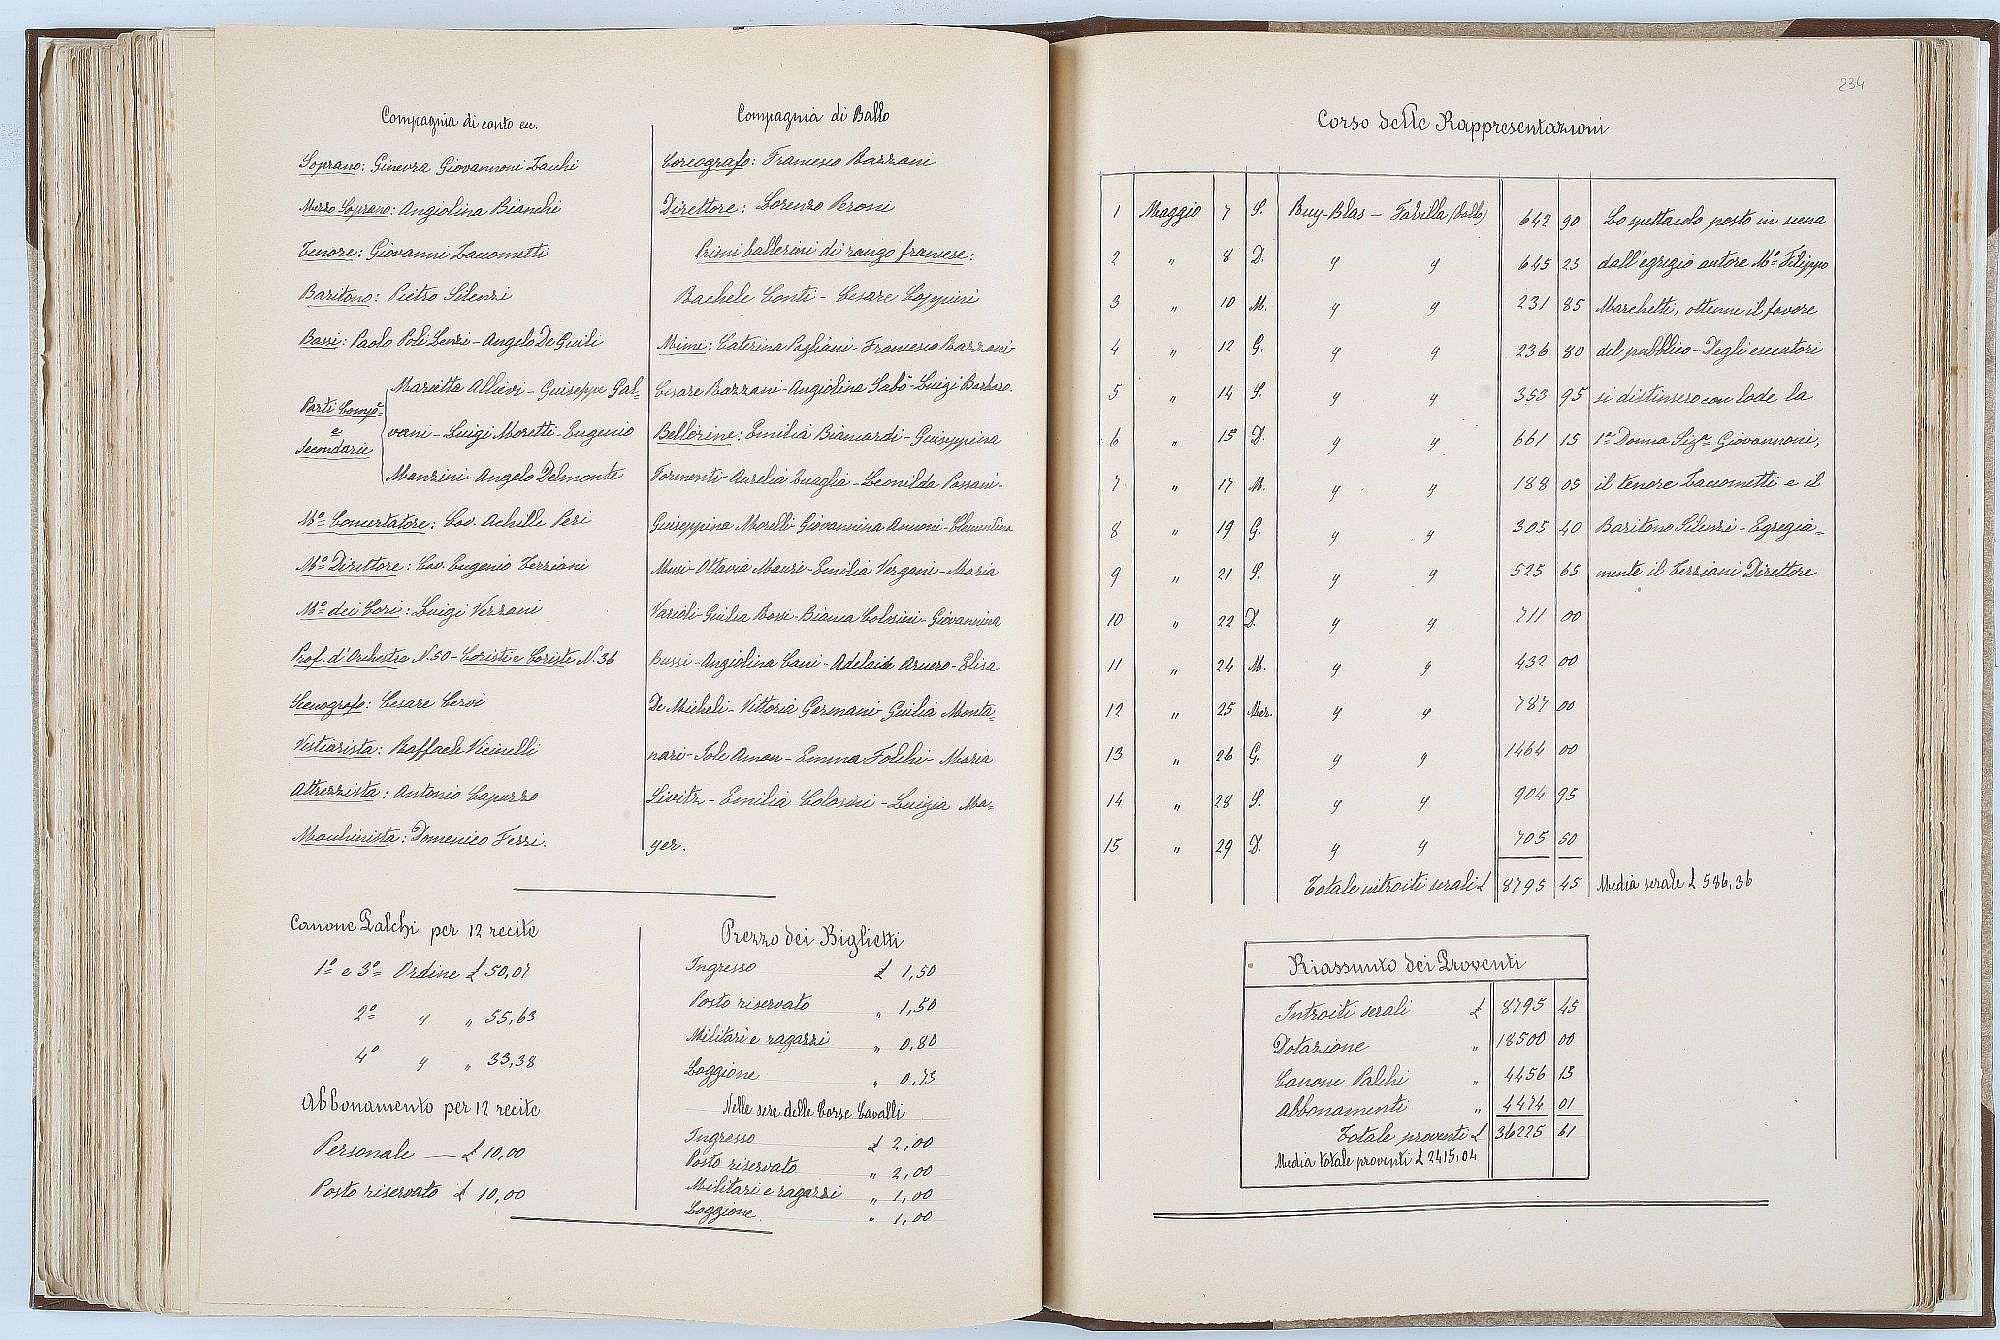 Compagnia di canto ecc.
Soprano: Ginevra Giovannoni Zacchi
Mezzo Soprano: Angiolina Bianchi
Tenore: Giovanni Zacometti
Baritono: Pietro Silenzi
Bassi: Paolo Poli Lenzi - Angelo De Giuli
Parti Comp.e
e
Secondarie
Marietta Allievi - Giuseppe Gal-
vani - Luigi Moretti - Eugenio
Manzini Angelo Delmonte
Mo. Concertatore: Cav. Achille Peri
Mo. Direttore: Cav. Eugenio Terziani
Mo. dei Cori: Luigi Vezzani
Prof. d'Orchestra N. 50 - Coristi e Coriste N. 36
Scenografo: Cesare Cervi
Vestiarista: Raffaele Vicinelli
Attrezzista: Antonio Capuzzo
Macchinista: Domenico Ferri.
Compagnia di Ballo
Coreografo: Francesco Razzani
Direttore: Lorenzo Peroni
Primi ballerini di rango francese:
Rachele Conti - Cesare Coppini
Mimi: Caterina Pagliani - Francesco Razzani
Cesare Razzani - Angiolina Sabò - Luigi Barbaro
Ballerine: Emilia Biancardi - Giuseppina
Formenti - Aurelia Quaglia - Leonilda Passani -
Giuseppina Morelli - Giovannina Annoni - Clementina
Musi - Ottavia Mauri - Emilia Vergani - Maria
Varioli - Giulia Bove - Bianca Colosini - Giovannina
Bussi - Angiolina Cani - Adelaide - Elisa
De Micheli - Vittoria Germani - Giulia Monta-
nari - Iole Aman - Emma Folchi - Maria
Sivitz - Emilia Colosini - Luigia Ma-
yer.
Canone Palchi per 12 recite
1o. e 3o. Ordine £ 50,07
2o. " " 55,63
4o " " 33,38
Abbonamento per 12 recite
Personale — £ 10,00
Posto riservato £ 10,00
Prezzo dei Biglietti
Ingresso £ 1,50
Posto riservato " 1,50
Militari e ragazzi " 0,80
Loggione " 0,75
Nelle sere delle Corse Cavalli
Ingresso £ 2,00
Posto riservato " 2,00
Militari e ragazzi " 1,00
Loggione " 1,00
234
Corso delle Rappresentazioni
1 Maggio 7 S. Ruy-Blas - Favilla (ballo) 642 90 Lo spettacolo posto in scena
2 " 8 D. " " 645 25 dall'egregio autore Mo. Filippo
3 " 10 M. " " 231 85 Marchetti, ottenne il favore
4 " 12 G. " " 236 80 del pubblico - Degli esecutori
5 " 14 S. " " 353 95 si distinsero con lode la
6 " 15 D. " " 661 15 1a. Donna Sigra. Giovannoni,
7 " 17 M. " " 188 05 il tenore Zacometti e il
8 " 19 G. " " 305 40 Baritono Silenzi - Egregia-
9 " 21 S. " " 525 65 mente il Terziani Direttore
10 " 22 D. " " 711 00
11 " 24 M. " " 432 00
12 " 25 Mer. " " 787 00
13 " 26 G. " " 1464 00
14 " 28 S. " " 904 95
15 " 29 D. " " 705 50
Totale introiti serali £ 8795 45 Media serale £ 586,36
Riassunto dei Proventi
Introiti serali £ 8795 45
Dotazione " 18500 00
Canone Palchi " 4456 15
Abbonamenti " 4474 01
Totale proventi £ 36225 61
Media totale proventi £ 2415,04